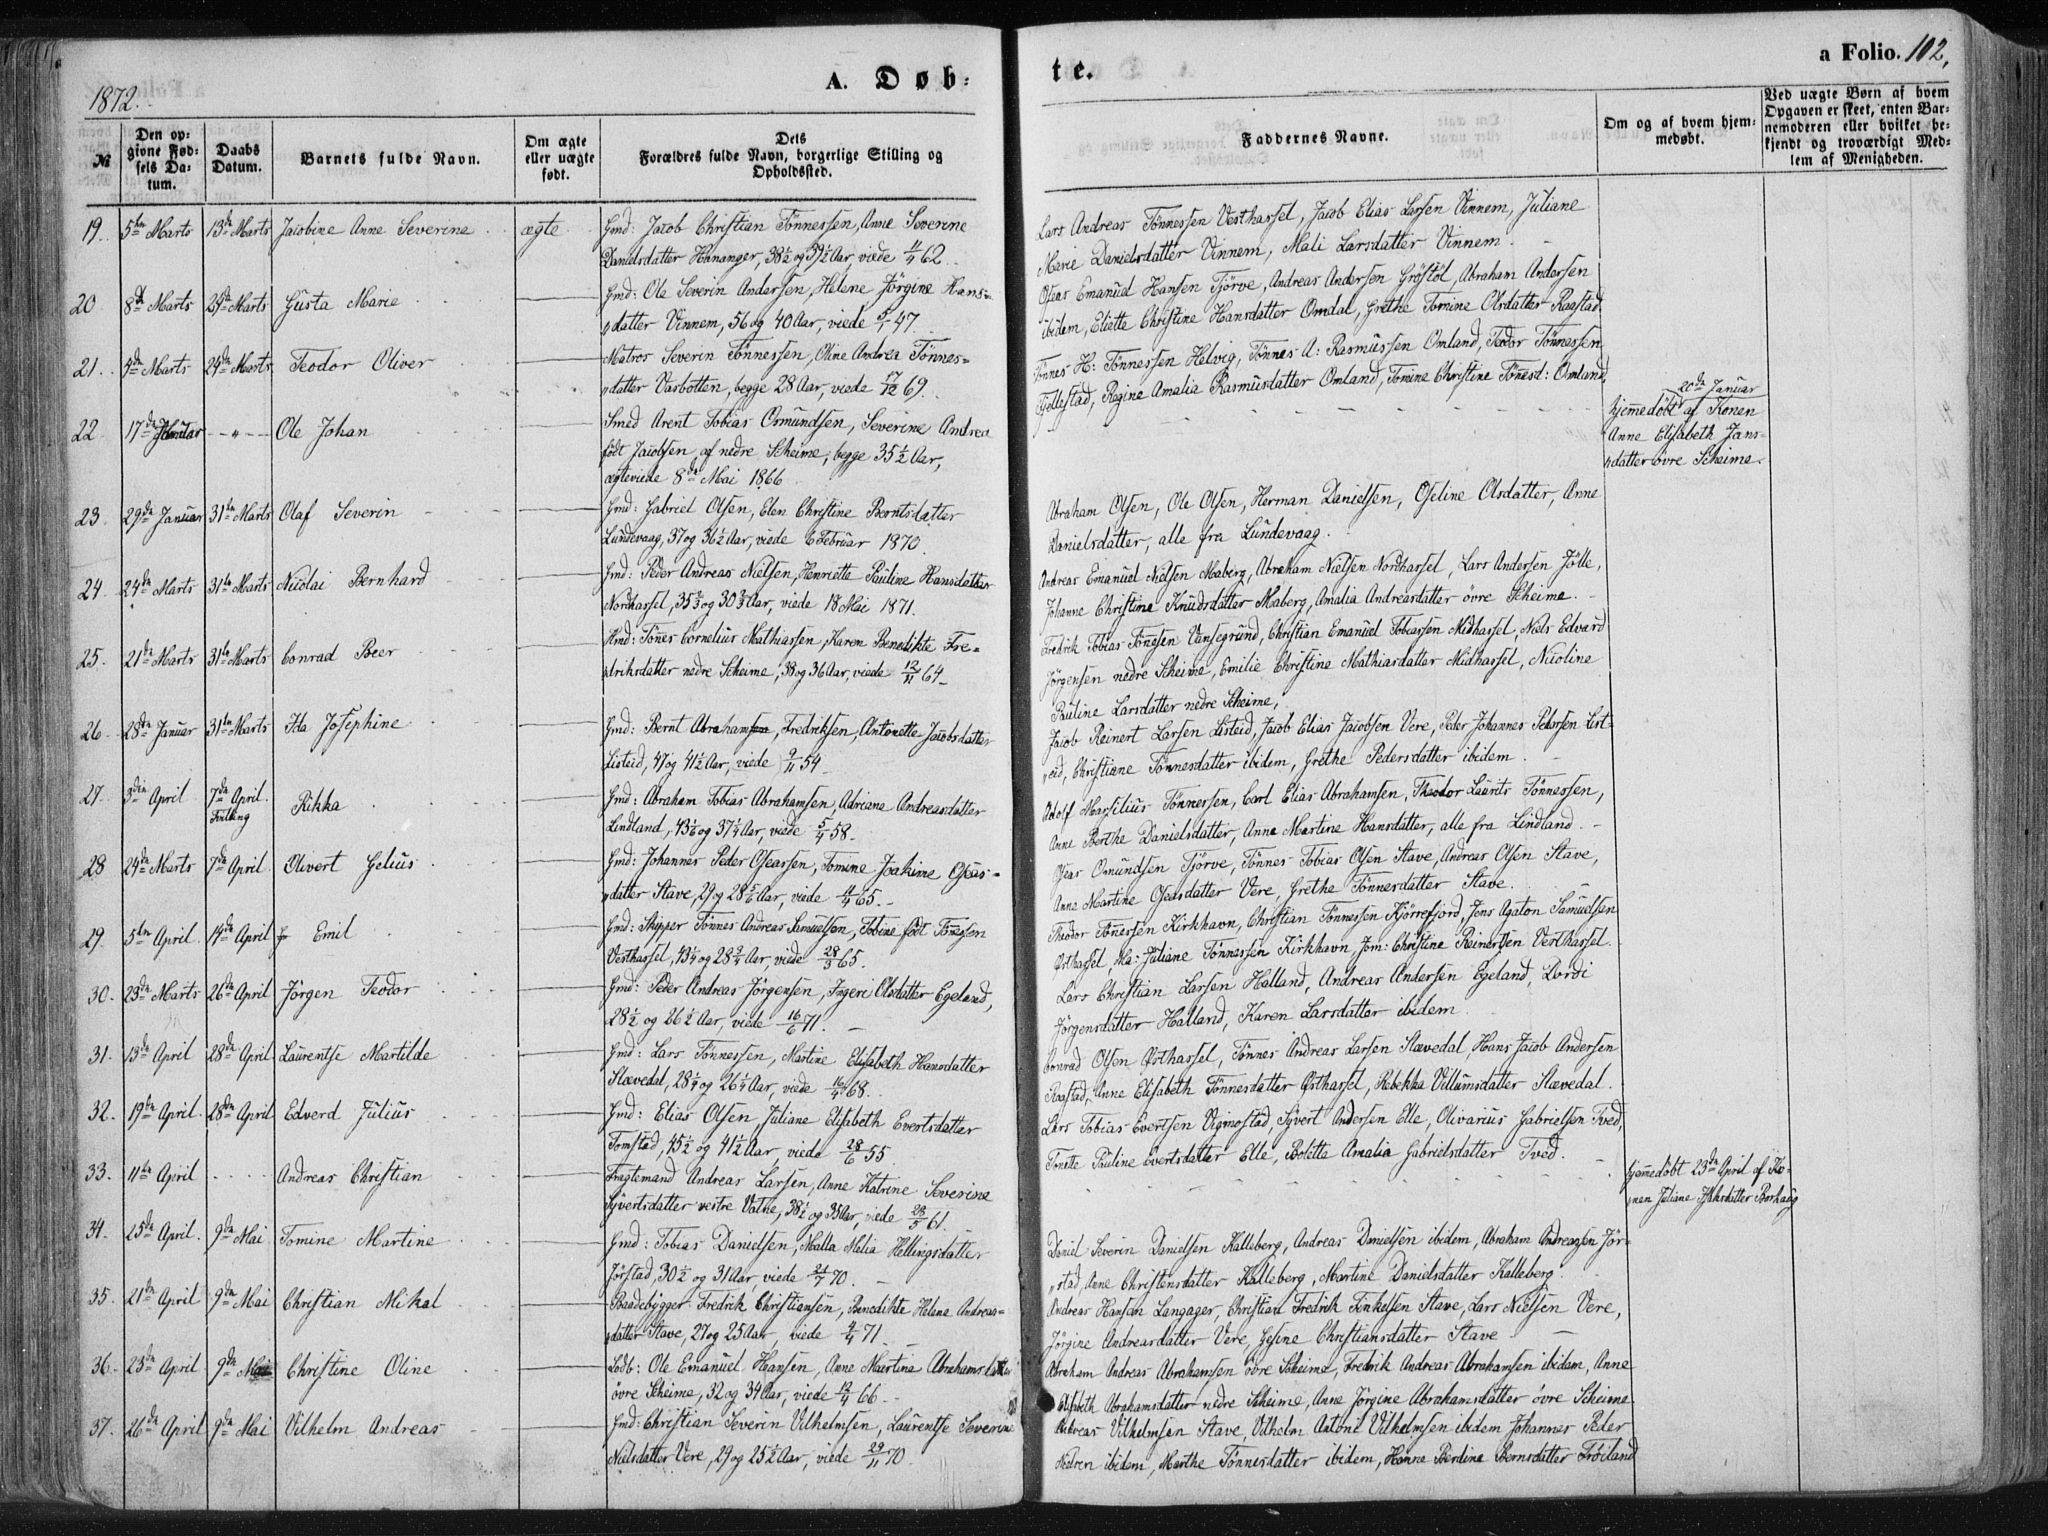 1872.
A. Døb:
№
Den opgivne Fødsels Datum.
Daabs Datum.
Barnets fulde Navn.
Om ægte eller uægte født.
Dets Forældres fulde Navn, borgerlige Stilling og Opholdssted.
19. 5te Marts 13de Marts Jacobine Anne Severine ægte Gmd: Jacob Christian Tönnessen, Anne Severine
Danielsdatter Hananger, 38½ og 39½ Aar, viede 11/4 62.
20 8de Marts 24de Marts Gusta Marie Gmd: Ole Severin Andersen, Helene Jörgine Hans=
datter Vinnem, 56 og 40 Aar, viede 5/1 47.
21. 4de Marts 24de Marts Teodor Oliver Matros Severin Tönnessen, Oline Andrea Tönnes=
datter Vasbotten, begge 28 Aar, viede 17/12 69.
22 17de Januar - " - Ole Johan Smed Arent Tobias Osmundsen, Severine Andrea
født Jacobsen, af nedre Skeime, begge 35½ Aar,
ægteviede 8de Mai 1866
23. 29de Januar 31te Marts Olaf Severin Gmd: Gabriel Olsen, Elen Christine Berntsdatter
Lundevaag, 37 og 36½ Aar, viede 6 Februar 1870.
24. 24de Marts 31te Marts Nicolai Bernhard Gmd: Peder Andreas Nielsen, Henriette Pauline Hansdatter
Nordhassel, 35⅔ og 30⅔ Aar, viede 18 Mai 1871.
25. 21de Marts 31te Marts Conrad Beer Hmd: Tönes Cornelius Mathiassen, Karen Benedikte Fre=
driksdatter nedre Skeime, 38 og 36 Aar, viede 12/11 64
26 28de Januar 31te Marts Ida Josephine Gmd: Bernt Abrahamsen, Fredriksen, Antonette Jacobsdatter
Listeid, 41 og 41½ Aar, viede 9/11 54
27. 3die April 7de April Tvilling Rikka Gmd: Abraham Tobias Abrahamsen, Adriane Andreasdatter
Lindland, 43 1/6 og 37¼ Aar, viede 5/4 58.
28 24de Marts 7de April Olivert Gelius Gmd: Johannes Peder Oseassen, Tomine Joakime Oseas=
datter Stave, 29 og 28 5/6 Aar, viede 11/4 65.
29. 5te April 14de April Emil Gmd: Skipper Tönnes Andreas Samuelsen, Tobine født Tönesen
Vesthassel, 43¼ og 28¾ Aar, viede 28/3 65.
30. 23de Marts 26de April Jörgen Teodor Gmd: Peder Andreas Jörgensen, Ingeri Olsdatter Egeland,
28½ og 26½ Aar, viede 16/6 71.
31. 13de April 28de April Laurentse Martilde Gmd: Lars Tönnessen, Martine Elisabeth Hansdatter
Slævedal, 28¼ og 26¼ Aar, viede 16/4 68.
32. 19de April 28de April Edverd Julius Gmd: Elias Olsen, Juliane Elisabeth Evertsdatter
Tomstad, 45½ og 41½ Aar, viede 28/6 55
33. 11te April Andreas Christian Fragtemand Andreas Larsen, Anne Katrine Severine
Syvertsdatter vestre Vatne, 38½ og 35 Aar, viede 23/5 61.
34. 25de April. 9de Mai Tomine Martine Gmd: Tobias Danielsen, Malla Melia Hellingsdatter
Jörstad, 30½ og 31 Aar, viede 21/7 70.
35. 21de April 9de Mai Christian Mikal Baadebygger Fredrik Christiansen, Benedikte Helene Andreas=
datter Stave, 27 og 25 Aar, viede 4/4 71
36. 23de April 9de Mai Christine Oline Lodb: Ole Emanuel Hansen, Anne Martina Abrahamsdatter
övre Skeime, 32 og 34 Aar, viede 12/4 66
37. 26de April 9de Mai Vilhelm Andreas Gmd: Christian Severin Vilhelmsen, Laurentse Severine
Nielsdatter Vere, 29 og 25½ Aar, viede 29/11 70.
te.
a Folio. 102.
Faddernes Navne.
Om og af hvem hjemmedøbt.
Ved uægte Børn af hvem Opgaven er skeet, enten Barnemoderen eller hvilket bekjendt og troværdigt Medlem af Menigheden.
Lars Andreas Tönnessen Vesthassel, Jacob Elias Larsen Vinnem, Juliane
Marie Danielsdatter Vinnem, Mali Larsdatter Vinnem.
Oseas Emanuel Hansen Tjörve, Andreas Andersen Gröstöl, Abraham Andersen
ibidem, Eliette Christine Hansdatter Omdal, Grethe Tomine Olsdatter Raastad,
Tönnes H: Tönnessen Helvig, Tönnes A: Rasmussen Omland, Teodor Tönnessen
Fjellestad, Regine Amalia Rasmusdatter Omland, Tomine Christine Tönesd: Omland,
20de Januar
hjemedøbt af Konen
Anne Elisabeth Jans=
datter övre Skeime.
Abraham Olsen, Ole Olsen, Herman Danielsen, Oseline Olsdatter, Anne
Danielsdatter, alle fra Lundevaag.
Andreas Emanuel Nielsen Maberg, Abraham Nielsen Nordhassel, Lars Andersen Jölle,
Johanne Christine Knudsdatter Maberg, Amalia Andreasdatter övre Skeime.
Fredrik Tobias Tönesen Vansegrund, Christian Emanuel Tobiassen Midhassel, Niels Edvard
Jörgensen nedre Skeime, Emilie Christine Mathiasdatter Midhassel, Nicoline
Pauline Larsdatter nedre Skeime,
Jacob Reinert Larsen Listeid, Jacob Elias Jacobsen Vere, Peder Johannes Pedersen List=
eid, Christiane Tönnesdatter ibidem, Grethe Pedersdatter ibidem.
Adolf Marselius Tönnessen, Carl Elias Abrahamsen, Theodor Laurits Tönnessen,
Anne Berthe Danielsdatter, Anne Martine Hansdatter, alle fra Lindland.
Oseas Omundsen Tjörve, Tönnes Tobias Olsen Stave, Andreas Olsen Stave,
Anne Martine Oseasdatter Vere, Grethe Tönnesdatter Stave.
Theodor Tönessen Kirkhavn, Christian Tönnessen Kjörrefjord, Jens Agaton Samuelsen
Østhassel, Ma: Juliane Tönnessen Kirkhavn, Jom: Christine Reinertsen Vesthassel.
Lars Christian Larsen Halland, Andreas Andersen Egeland, Lordi
Jörgensdatter Halland, Karen Larsdatter ibidem
Conrad Olsen Østhassel, Tönnes Andreas Larsen Slævedal, Hans Jacob Andersen
Raastad, Anne Elisabeth Tönnesdatter Østhassel, Rebekka Villumsdatter Slævedal.
Lars Tobias Evertsen Vigmostad, Syvert Andersen Elle, Olivarius Gabrielsen Tved,
Tonete Pauline Evertsdatter Elle, Boletta Amalia Gabrielsdatter Tved.
hjemedøbt 23de April af Ko=
nen Juliane Isaksdatter Borhaug
Daniel Severin Danielsen Kalleberg, Andreas Danielsen ibidem, Abraham Andreassen Jör=
stad, Anne Christensdatter Kalleberg, Martine Danielsdatter Kalleberg.
Andreas Hansen Langager, Christian Fredrik Tönkelsen Stave, Lars Nielsen Vere,
Jörgine Andreasdatter Vere, Gesine Christiansdatter Stave
Abraham Andreas Abrahamsen övre Skeime, Fredrik Andreas Abrahamsen ibidem, Anne
Elisabeth Abrahamsdatter nedre Skeime, Anne Jörgine Abrahamsdatter övre Skeime.
Andreas Vilhelmsen Stave, Vilhelm Antoni Vilhelmsen ibidem Johannes Peder
Nielsen ibidem, Marthe Tönnesdatter ibidem, Hanne Berdine Bernsdatter Tröiland